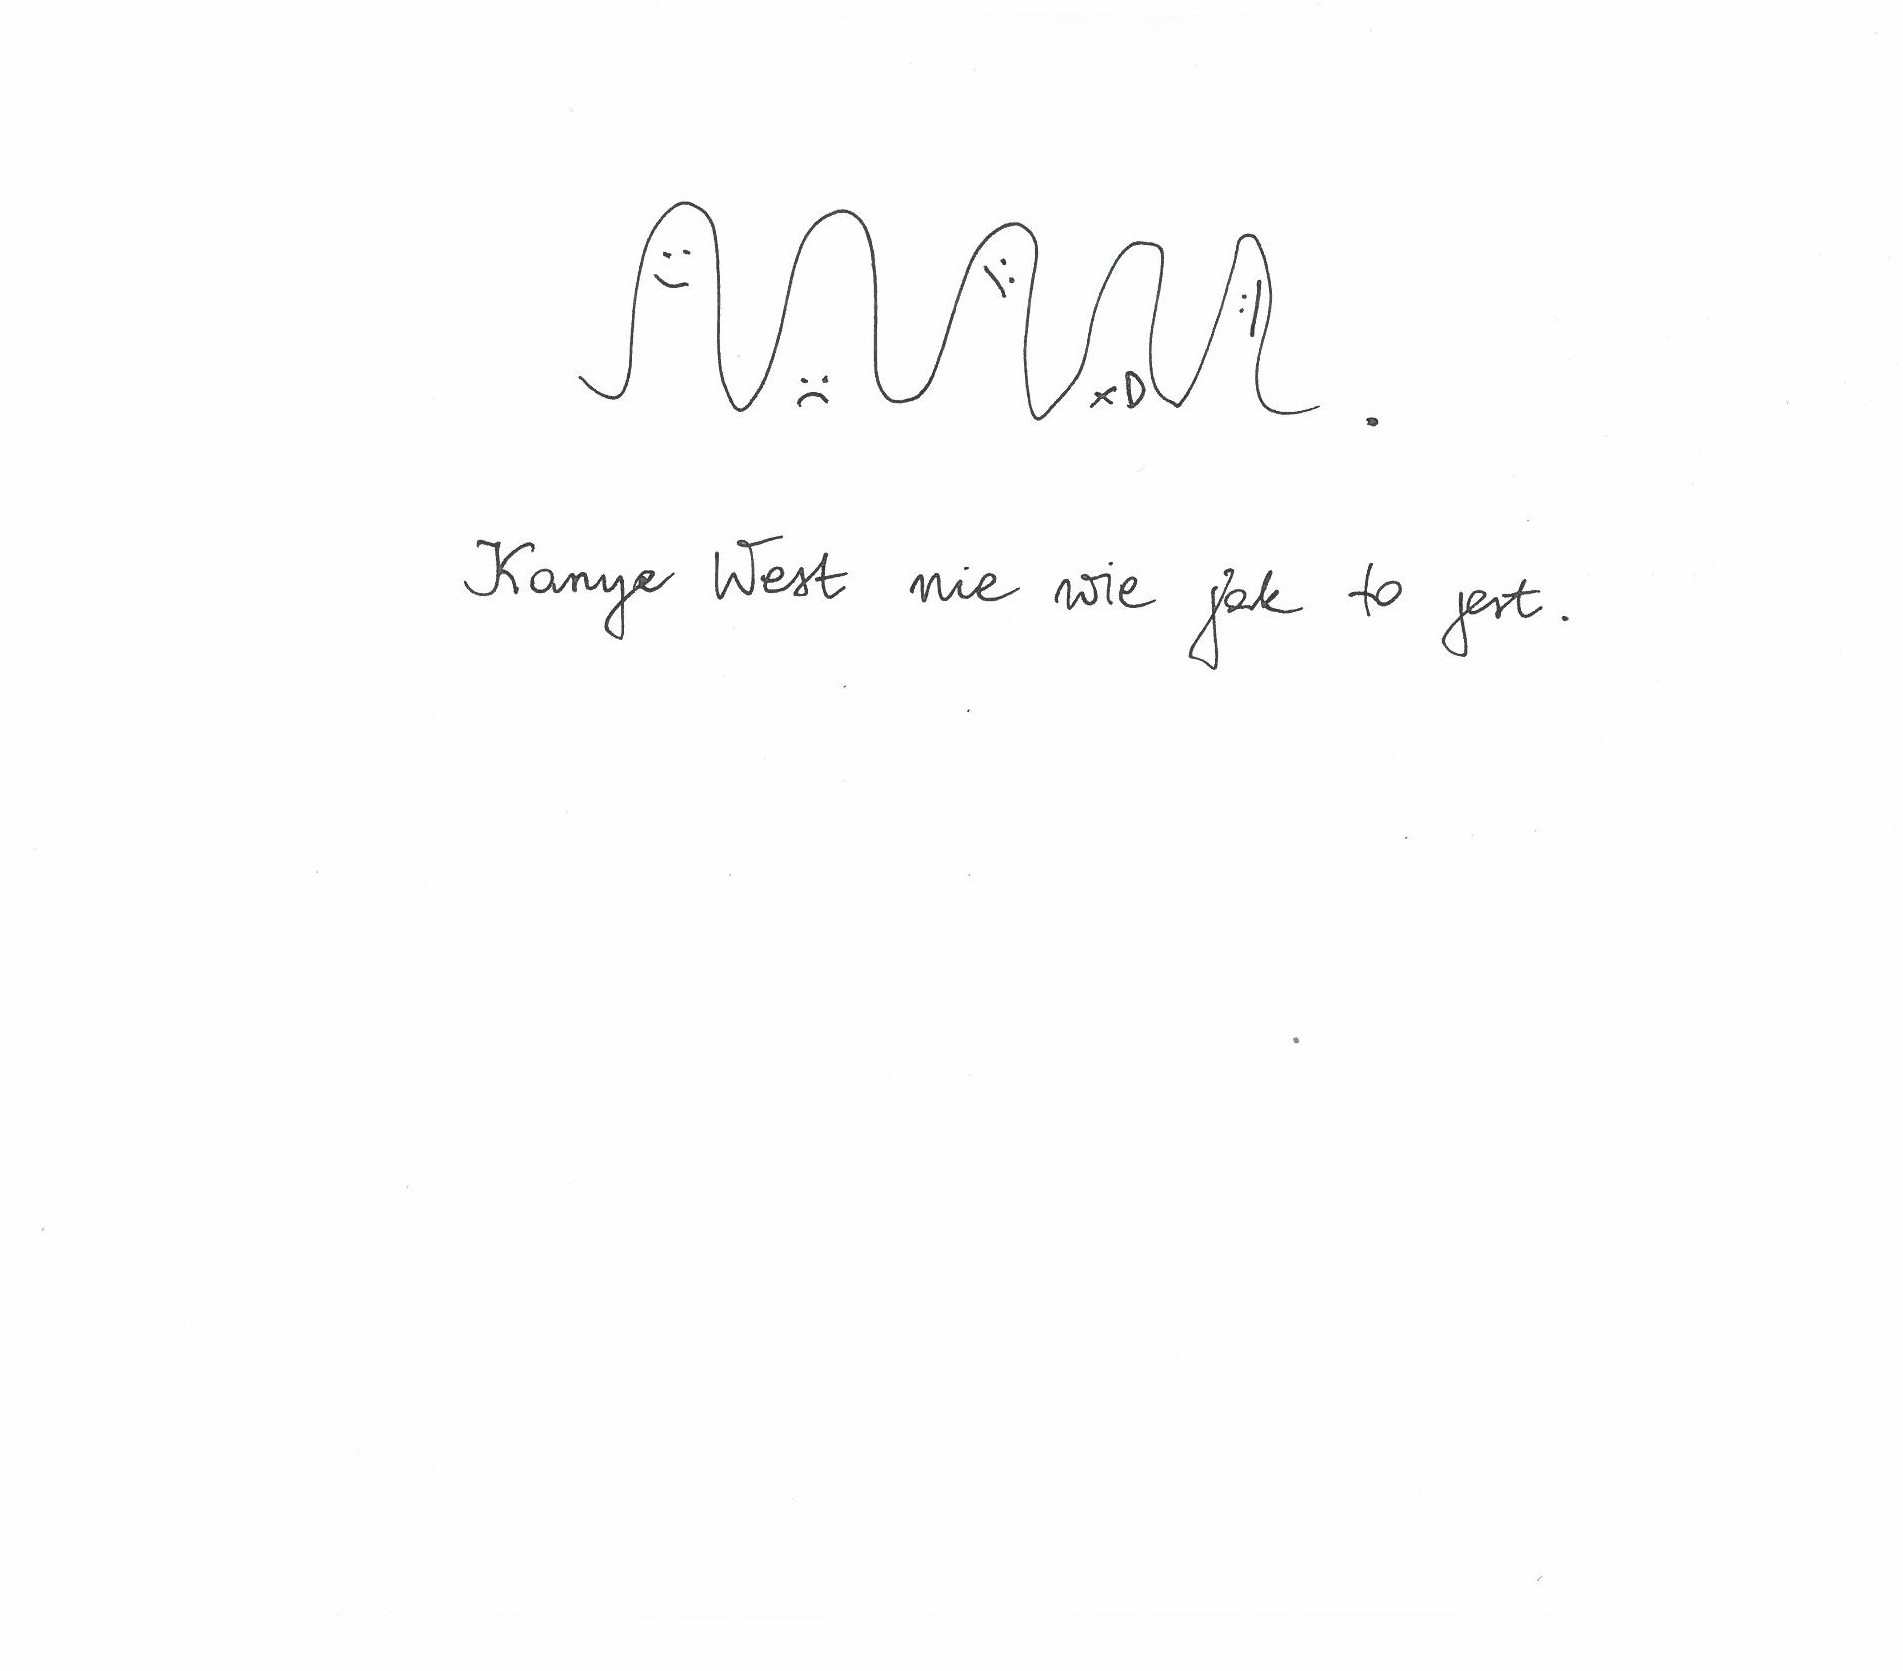 xD
Kanye West nie wie jak to jest.